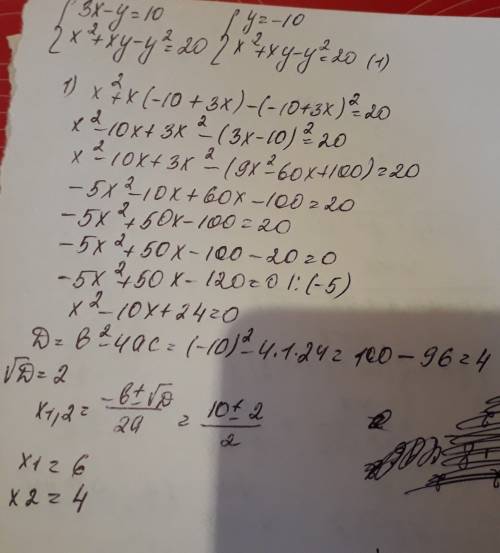 {3x-y=10 {y=-10
{x²+xy-y²=20 {x²+xy-y²=20 (1)
1) x²+x(-10+3x)-(-10+3x)²=20
x²-10x+3x²-(3x-10)²=20
x²-10x+3x²-(9x²-60x+100)=20
-5x²-10x+60x-100=20
-5x²+50x-100=20
-5x²+50x-100-20=0
-5x²+50x-120=0 |:(-5)
x²-10x+24=0
D=b²-4ac=(-10)²-4.1.24=100-96=4
√D=2
x1,2=(-b±√D)/2a=(10±2)/2
x1=6
x2=4